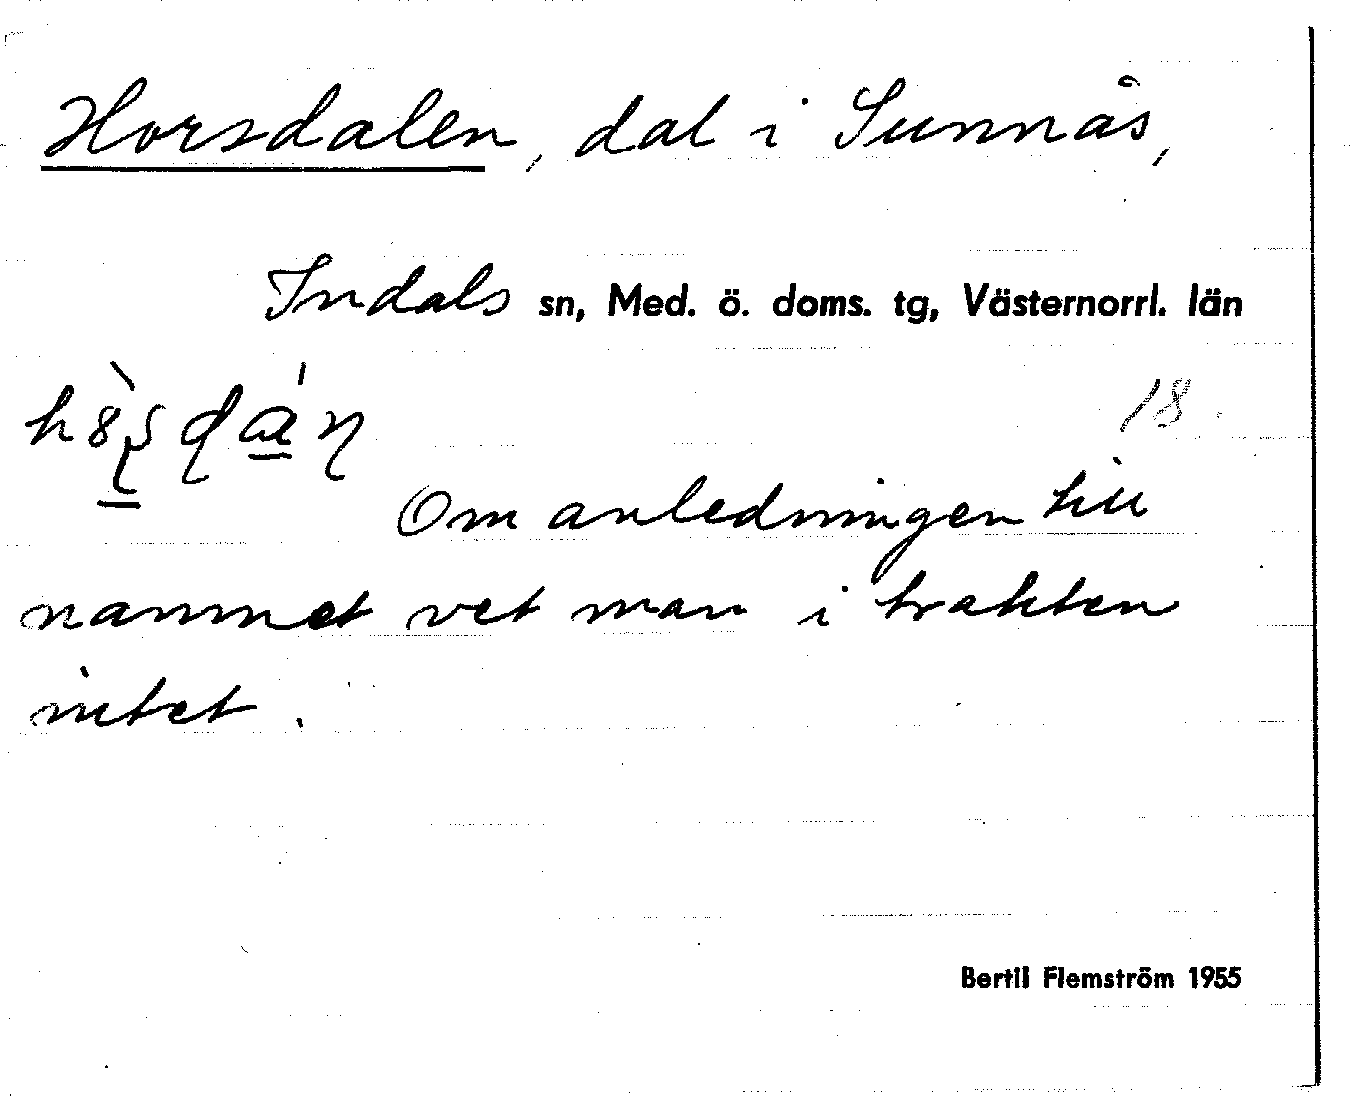 Horsdalen, dal i Sunnås,
Indals sn, Med. ö. doms. tg, Västernorrl. län
18
Om anledningen till
namnet vet man i trakten
intet.
Bertil Flemström 1955